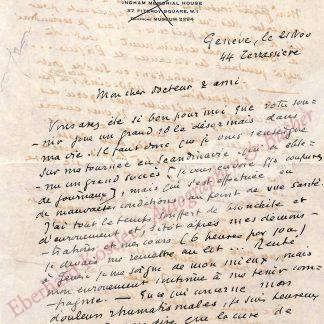 INGHAM MEMORIAL HOUSE
37 FITZROY SQUARE, W.1
TELEPHONE MUSEUM 2294
Genève, le 21 Nov
44 Terrassière
Mon cher Docteur & ami.
Vous avez été si bon pour moi que votre sou-
-nir joue un grand rôle désormais dans
ma vie. Il faut donc que je vous renseigne
sur ma tournée en Scandinavie qui a obte-
-nu un grand succès (je vous envoie des coupures
de journaux) mais qui s'est effectuée en
de mauvaises conditions au point de vue santé
J'ai tout ce temps souffert de bronchite et
d'enrouement et sitôt après mes démons-
-trations et mes cours (6 heures par jour)
je devais me remettre au lit... Rentrée
je me soigne de mon mieux mais
mon enrouement continue à me tenir com-
-pagnie. En ce qui concerne mes
douleurs rhumatismales, je suis heureux
dire que la cure de